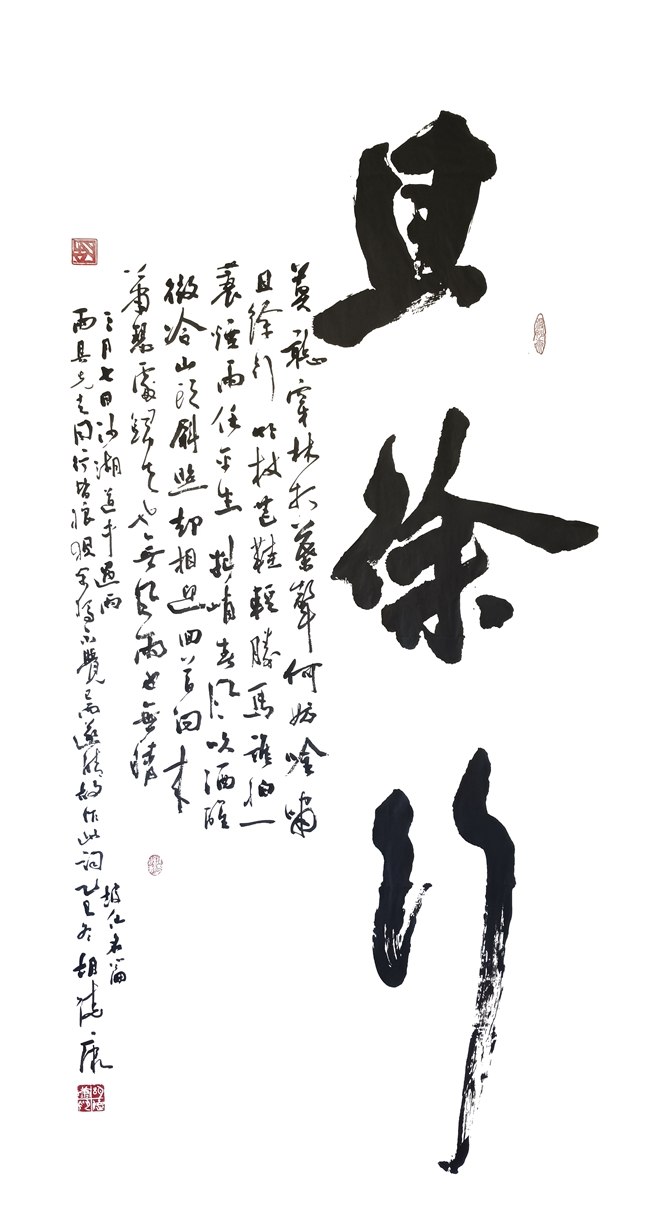 且徐行
莫聽穿林打葉聲何妨吟嘯
且徐行竹杖芒鞋輕勝馬誰怕一
蓑煙雨任平生料峭春風吹酒醒
微冷山頭斜照却相迎回首向來
蕭瑟處歸去也無風雨也無晴
三月七日沙湖道中遇雨
雨具先去同行皆狼狽余獨不覺已而遂晴故作此詞
坡仙名篇
乙巳冬胡康